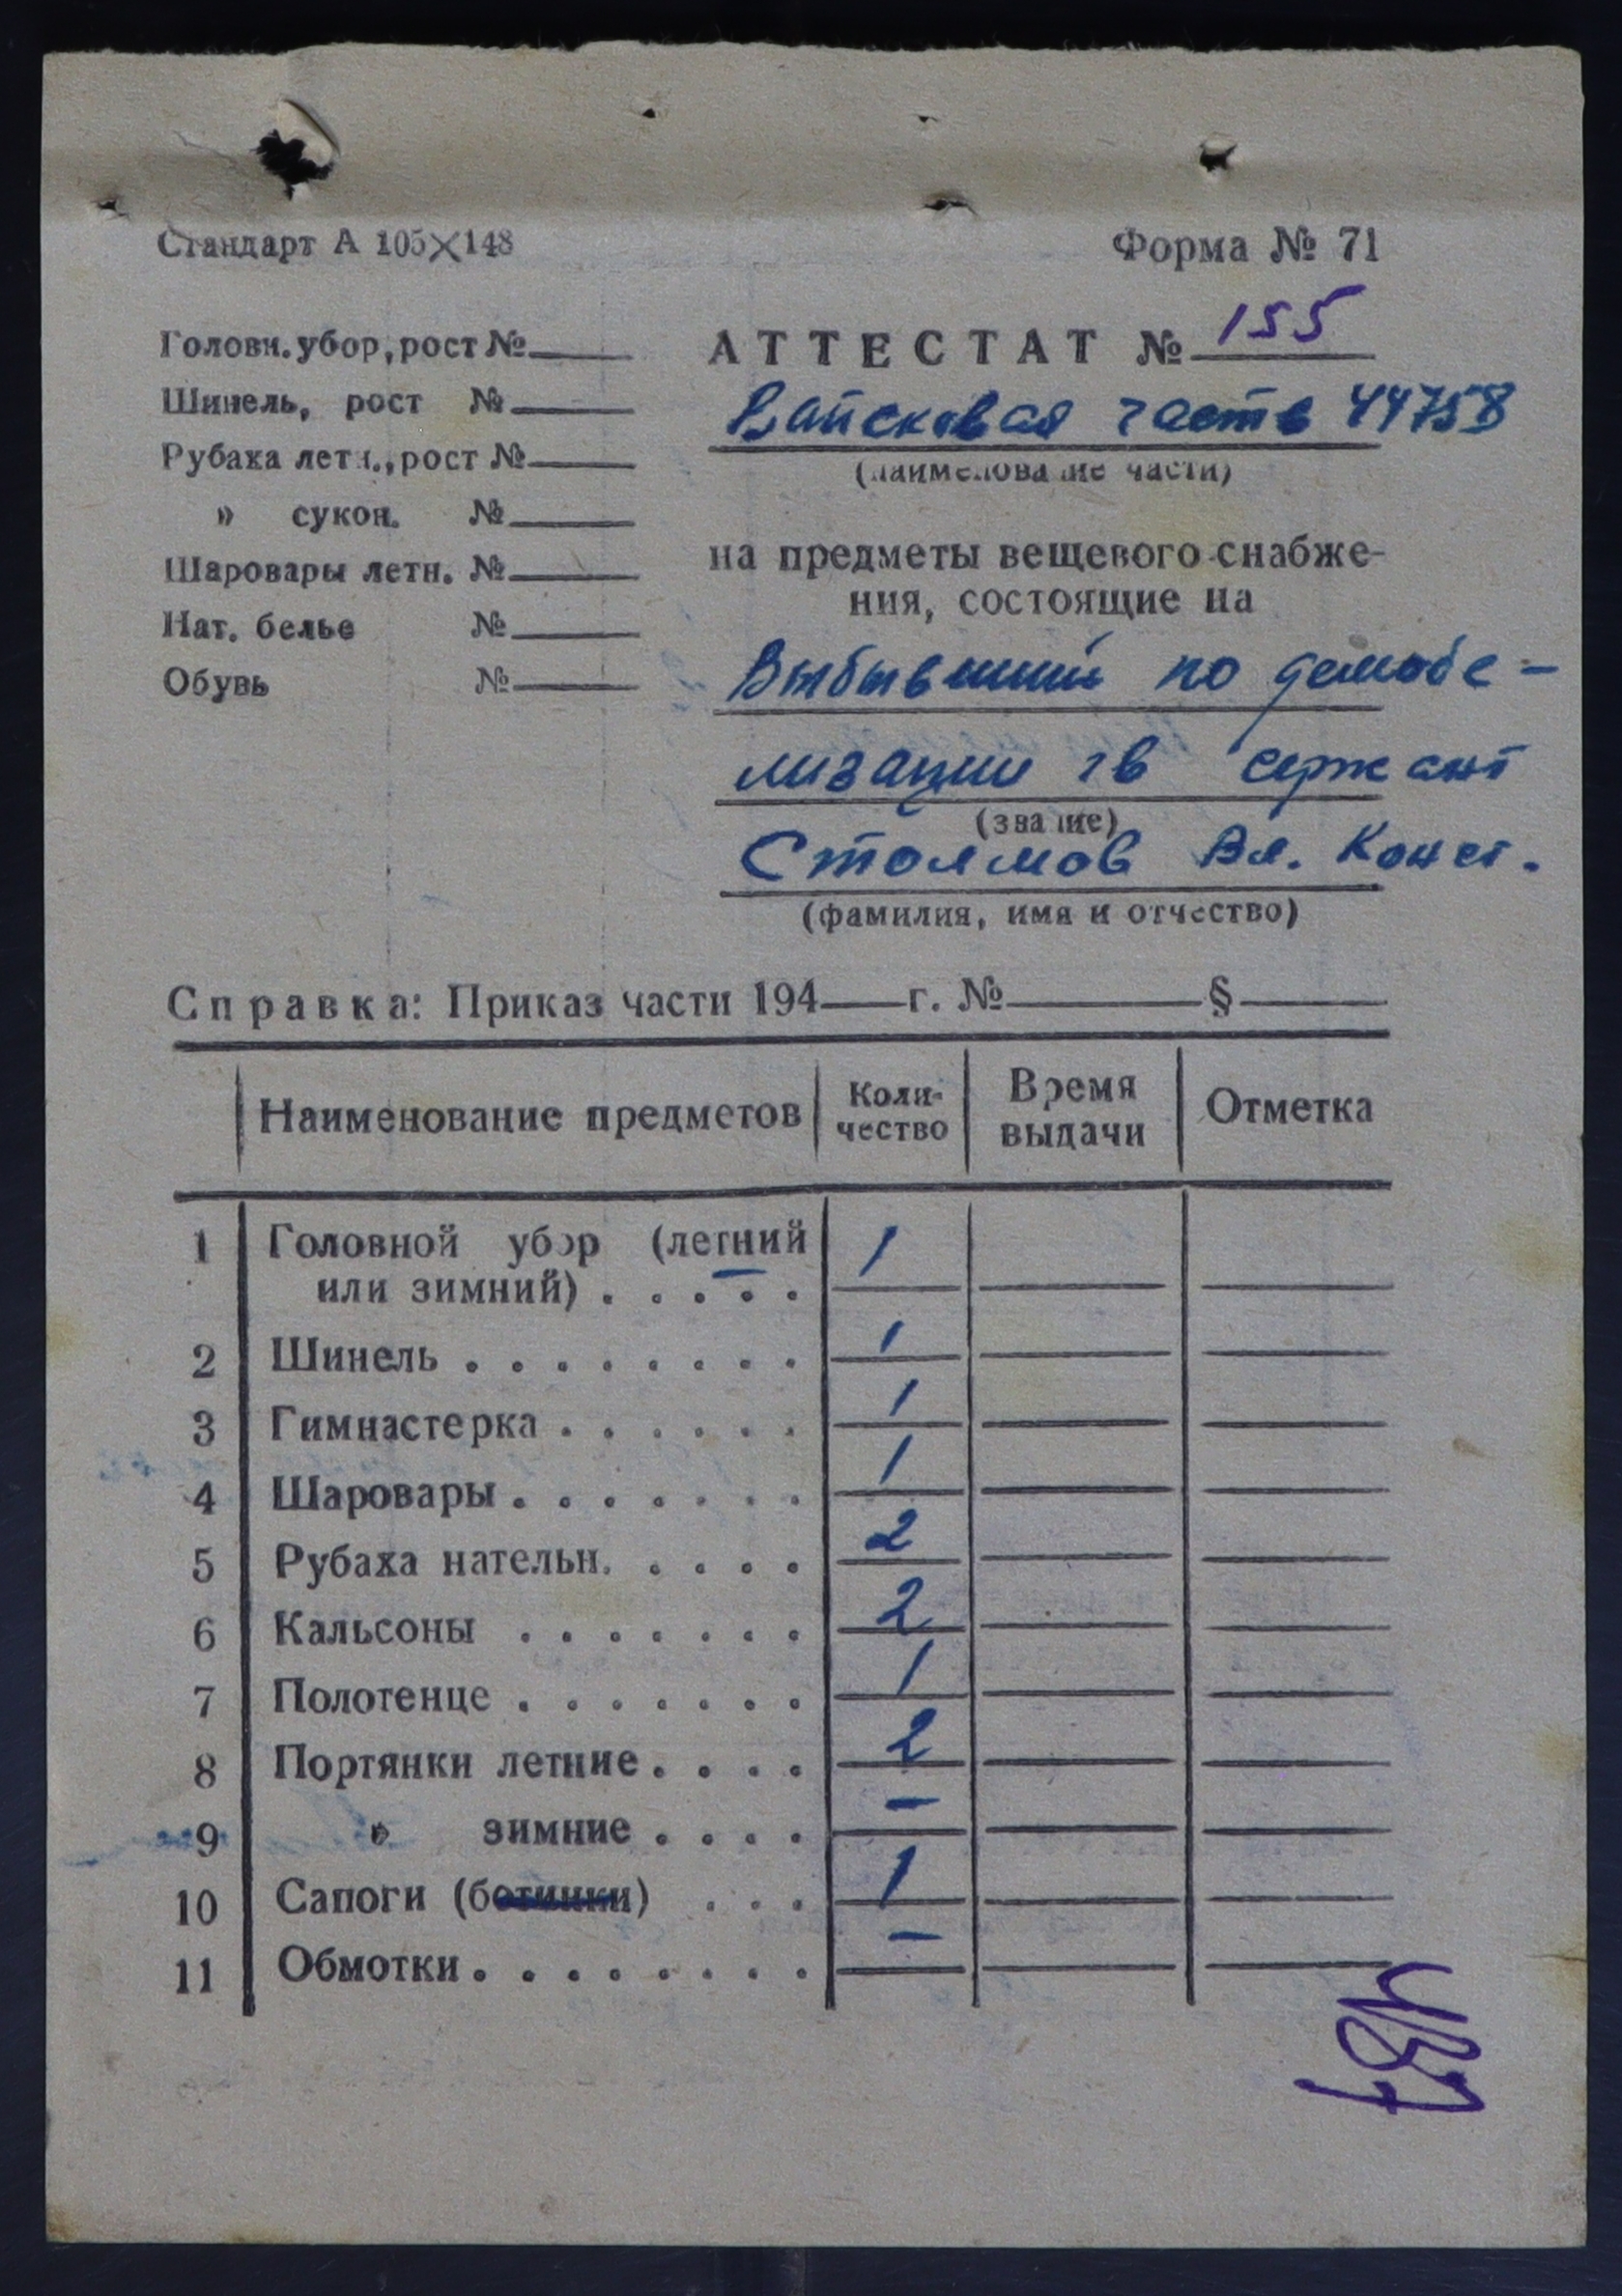 Стандарт А 105×148
Форма № 71
Головн. убор, рост №
Шинель, рост №
Рубаха летн., рост №
» сукон. №
Шаровары летн. №
Нат. белье №
Обувь №
АТТЕСТАТ № 155
Вайсковая часть 44758
(наименование части)
на предметы вещевого снабже-
ния, состоящие на
Выбывший по демобе-
лизации гв сержант
(звание)
Стоямов Вл. Конст.
(фамилия, имя и отчество)
Справка: Приказ части 194 г. № §
Наименование предметов Коли-чество Время выдачи Отметка
1 Головной убор (летний 1
или зимний) . . . . .
2 Шинель . . . . . . . . 1
3 Гимнастерка . . . . . . 1
4 Шаровары . . . . . . . 1
5 Рубаха нательн. . . . . 2
6 Кальсоны . . . . . . . 2
7 Полотенце . . . . . . . 1
8 Портянки летние . . . . 2
9 » зимние . . . . —
10 Сапоги (ботинки) . . . 1
11 Обмотки . . . . . . . . —